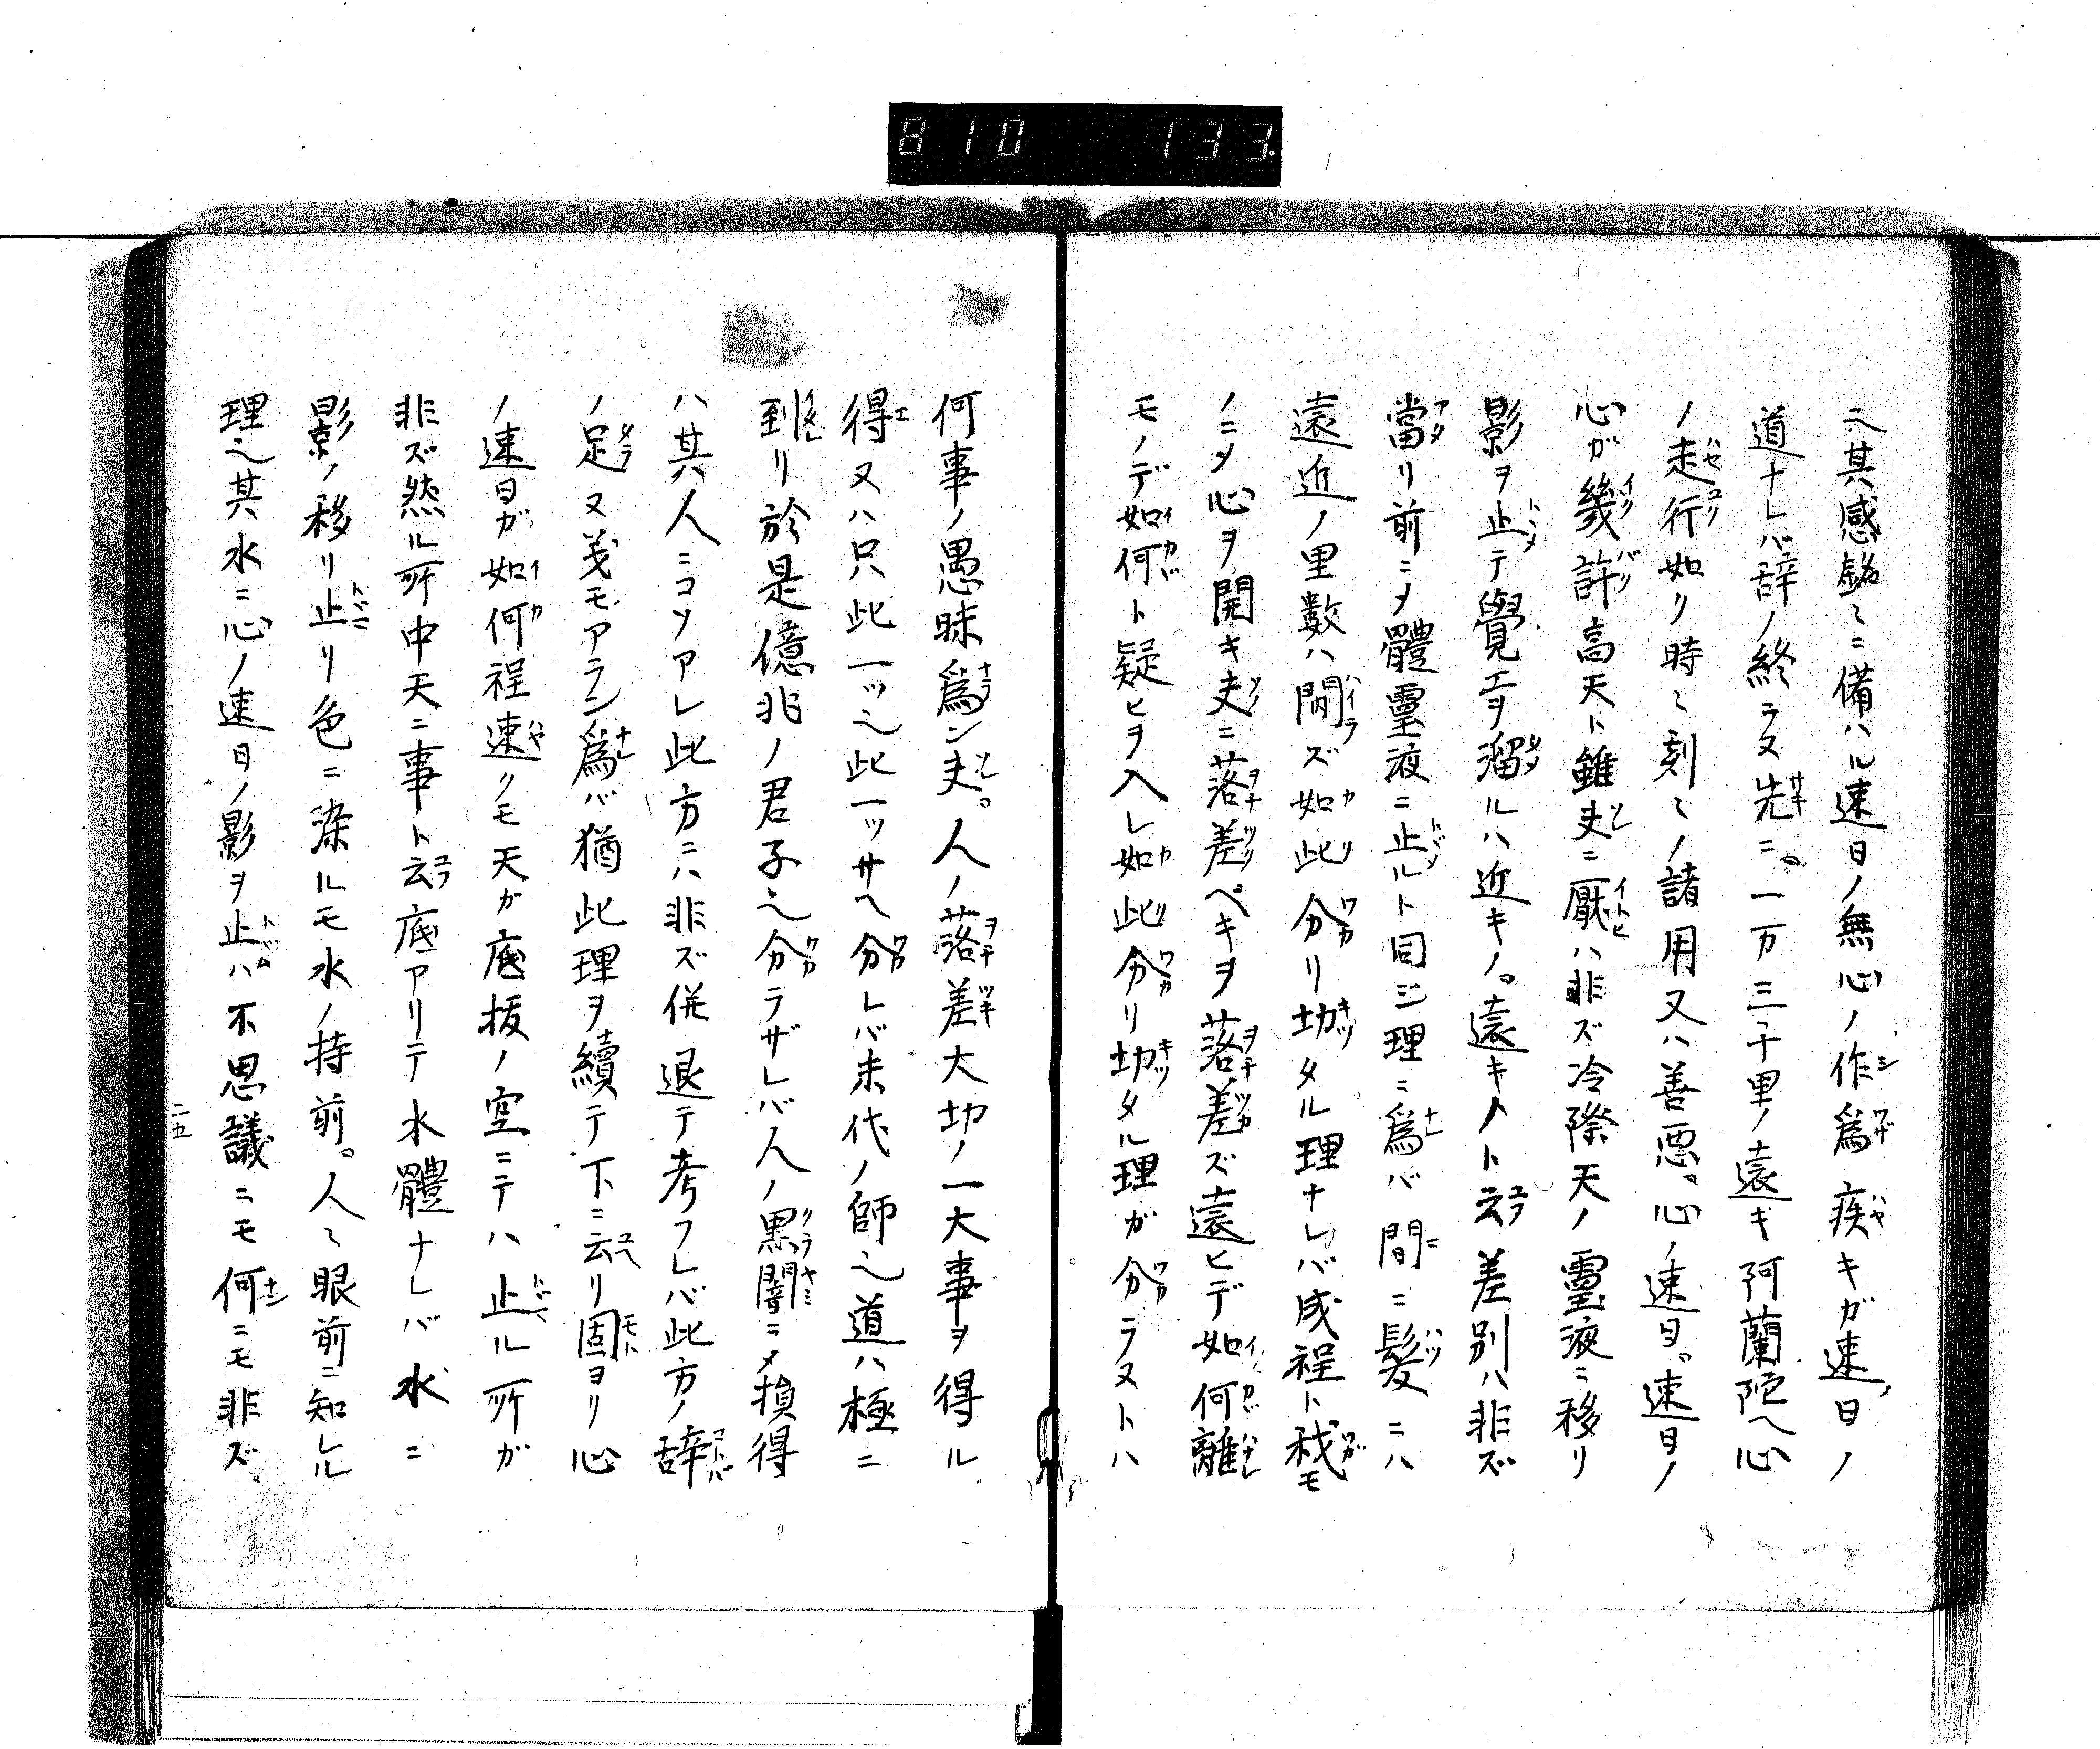 810 133.
ニ其感銘〻ニ備ハル速日ノ無心ノ作爲疾キガ速日ノ
道ナレバ辞ノ終ラヌ先ニ。一万三千里ノ遠キ阿蘭陀ヘ心
ノ走行如リ時〻刻〻ノ諸用又ハ善悪。心ノ速日。速日ノ
心ガ幾許高天ト雖夫ニ厭ハ非ズ冷際天ノ靈液ニ移リ
影ヲ止テ覺エヲ溜ルハ近キノ。遠キノト云差別ハ非ズ
當リ前ニメ體靈液ニ止ルト同ジ理ニ爲バ間ニ髪ニハ
遠近ノ里數ハ閙ズ如此分リ切タル理ナレバ成程ト我モ
ノニメ心ヲ開キ夫ニ落差ベキヲ落差ズ遠ヒデ如何離
モノデ如何ト疑ヒヲ入レ如此分リ切タル理ガ分ラヌトハ
何事ノ愚昧爲ン夫。人ノ落差大切ノ一大事ヲ得ル
得又ハ只此一ツ之此一ツサヘ分レバ末代ノ師之道ハ極ニ
到リ於是億兆ノ君子之分ラザレバ人ノ黒闇ニメ損得
ハ其人ニコソアレ此方ニハ非ズ併退テ考フレバ此方ノ辞
ノ足ヌ義モアラン爲バ猶此理ヲ續テ下ニ云リ固ヨリ心
ノ速日ガ如何程速クモ天ガ底抜ノ空ニテハ止ル所ガ
非ズ然ル所中天ニ事ト云底アリテ水體ナレバ水ニ
影ノ移リ止リ色ニ染ルモ水ノ持前。人〻眼前ニ知ル
理之其水ニ心ノ速日ノ影ヲ止ハ不思議ニモ何ニモ非ズ
二五